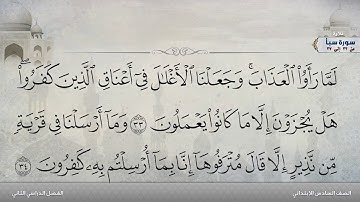 تلاوة
سورة سبأ
لَمَّا رَأَوُا۟ ٱلْعَذَابَ ۚ وَجَعَلْنَا ٱلْأَغْلَـٰلَ فِىٓ أَعْنَاقِ ٱلَّذِينَ كَفَرُوا۟ ۖ
هَلْ يُجْزَوْنَ إِلَّا مَا كَانُوا۟ يَعْمَلُونَ ٣٣ وَمَآ أَرْسَلْنَا فِى قَرْيَةٍ
مِّن نَّذِيرٍ إِلَّا قَالَ مُتْرَفُوهَآ إِنَّا بِمَآ أُرْسِلْتُم بِهِۦ كَـٰفِرُونَ ٣٤
الصف السادس الابتدائي
الفصل الدراسي الثاني